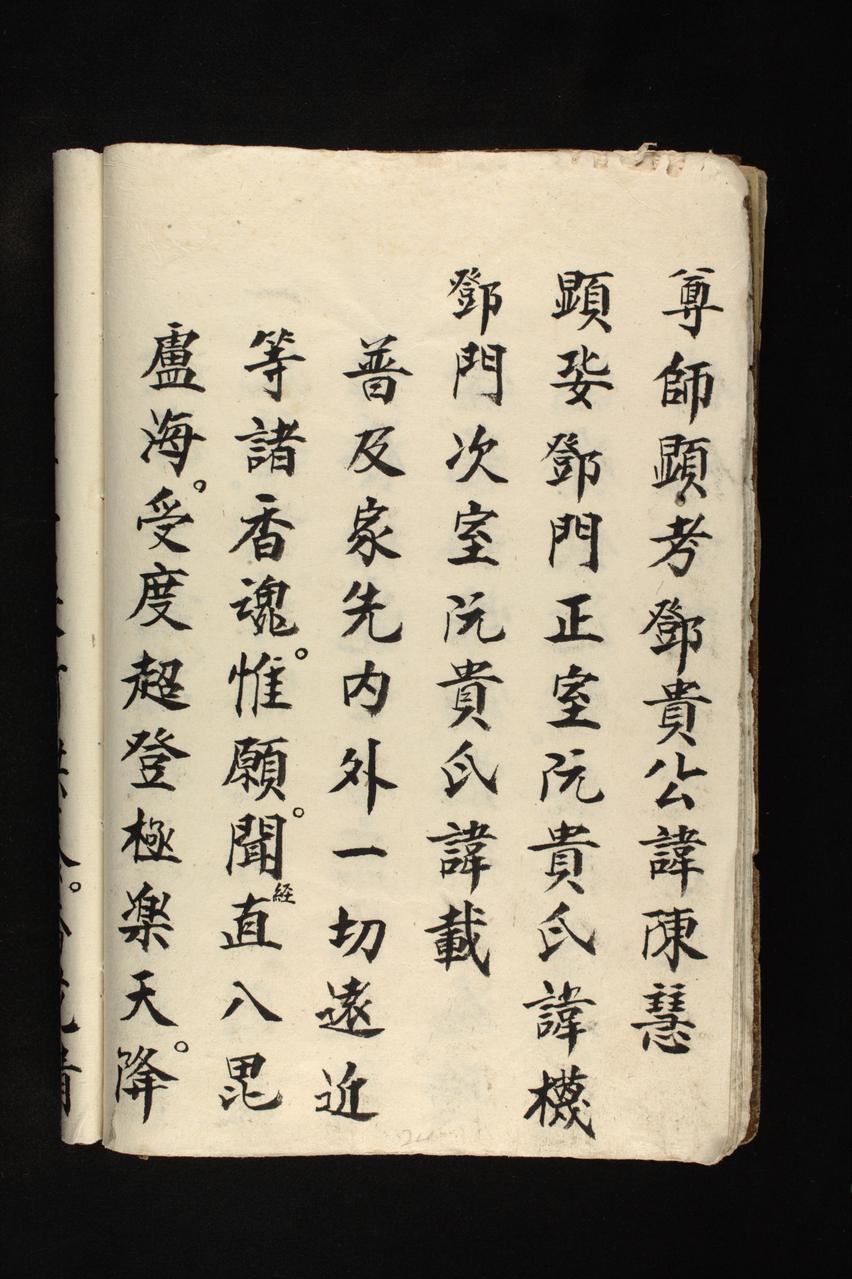 尊師顕考鄧貴公諱陳慧
顕妣鄧門正室阮貴氏諱機
鄧門次室阮貴氏諱載
普及家先内外一切遠近
等諸香魂。惟願。聞経直八毘
盧海。受度超登極楽天。降